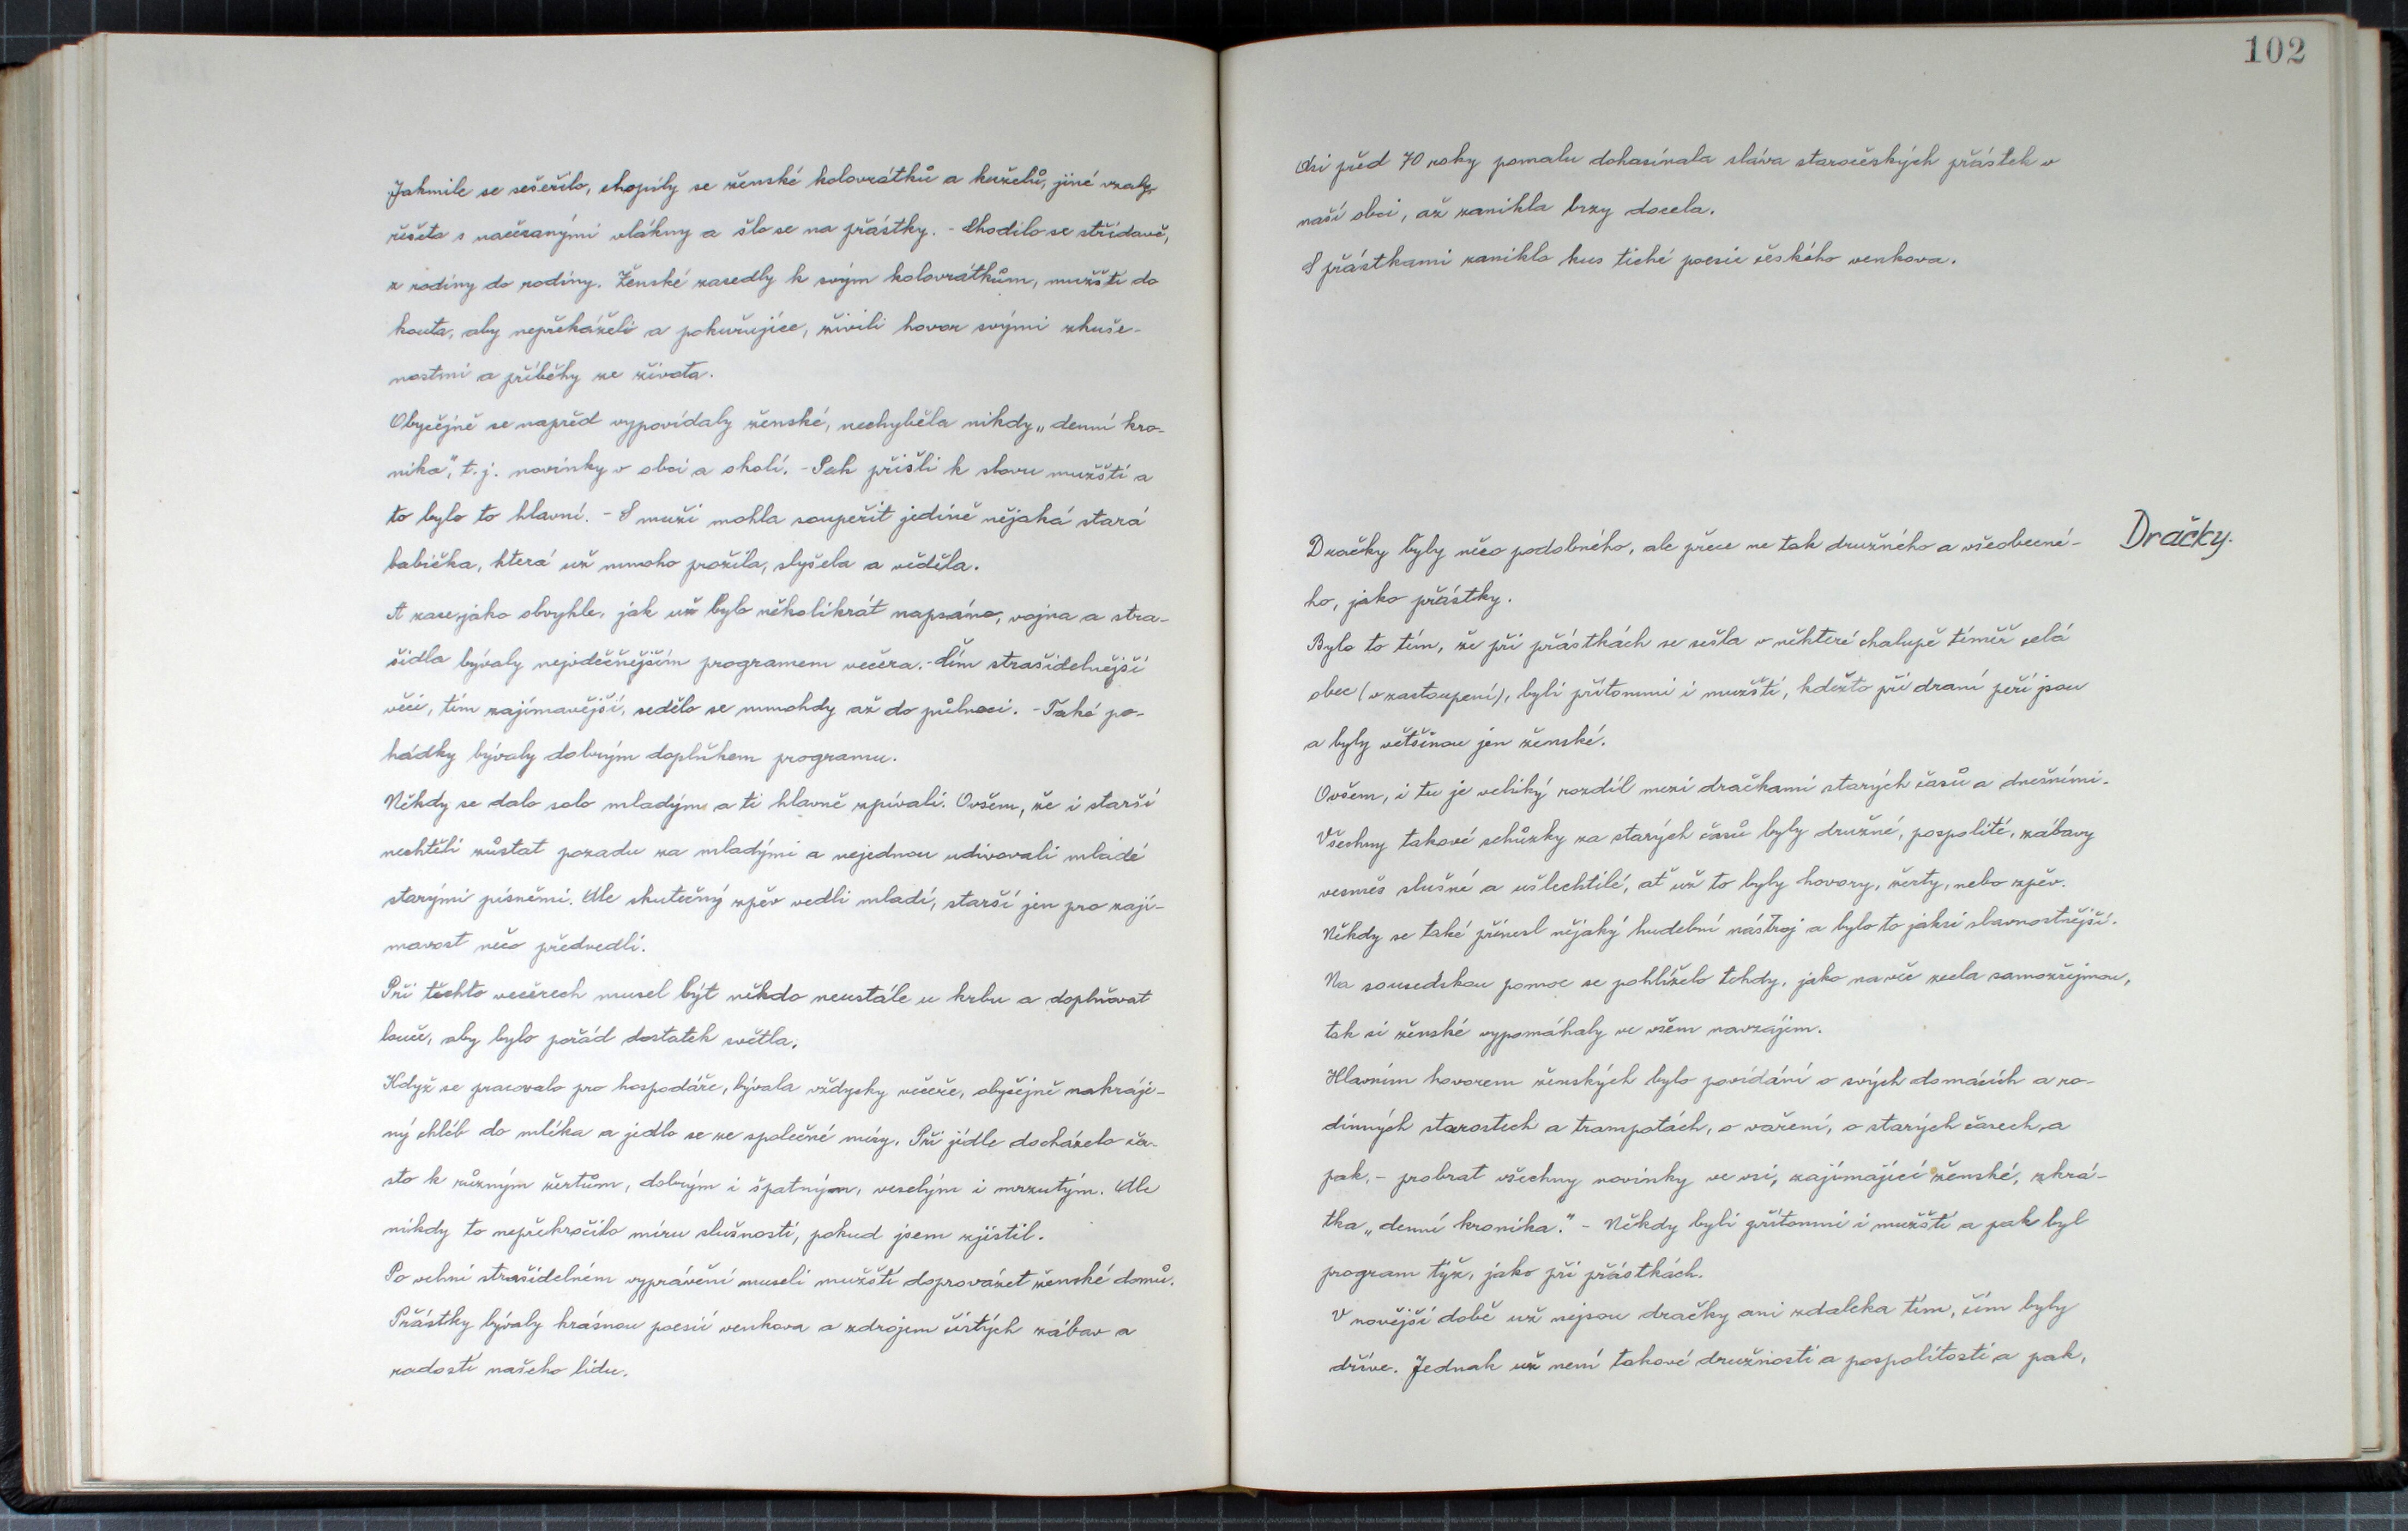 Jakmile se sešeřilo, chopily se ženské kolovrátků a kuželů, jiné vzaly
řešeta s načesanými vlákny a šlo se na přástky. - Chodilo se střídavě,
z rodiny do rodiny. Ženské zasedly k svým kolovrátkům, mužští do
kouta, aby nepřekáželi a pokuřujíce, živili hovor svými zkuše-
nostmi a příběhy ze života.
Obyčejně se napřed vypovídaly ženské, nechyběla nikdy „denní kro-
nika", t.j. novinky v obci a okolí. - Pak přišli k slovu mužští a
to bylo to hlavní. - S muži mohla soupeřit jedině nějaká stará
babička, která už mnoho prožila, slyšela a věděla.
A zase, jako obvykle, jak už bylo několikrát napsáno, vojna a stra-
šidla bývaly nejvděčnějším programem večera. - Čím strašidelnější
věci, tím zajímavější, sedělo se mnohdy až do půlnoci. - Také po-
hádky bývaly dobrým doplňkem programu.
Někdy se dalo solo mladým a ti hlavně zpívali. Ovšem, že i starší
nechtěli zůstat pozadu za mladými a nejednou udivovali mladé
starými písněmi. Ale skutečný zpěv vedli mladí, starší jen pro zají-
mavost něco předvedli.
Při těchto večerech musel být někdo neustále u krbu a doplňovat
louče, aby bylo pořád dostatek světla.
Když se pracovalo pro hospodáře, bývala vždycky večeře, obyčejně nakráje-
ný chléb do mléka a jedlo se ze společné mísy. Při jídle docházelo ča-
sto k různým žertům, dobrým i špatným, veselým i mrzutým. Ale
nikdy to nepřekročilo míru slušnosti, pokud jsem zjistil.
Po velmi strašidelném vyprávění museli mužští doprovázet ženské domů.
Přástky bývaly krásnou poesií venkova a zdrojem čistých zábav a
radostí našeho lidu.
102
Asi před 70 roky pomalu dohasínala sláva staročeských přástek v
naší obci, až zanikla brzy docela.
S přástkami zaniklo kus tiché poesie českého venkova.
Dračky.
Dračky byly něco podobného, ale přece ne tak družného a všeobecné-
ho, jako přástky.
Bylo to tím, že při přástkách se sešla v některé chalupě téměř celá
obec (v zastoupení), byli přítomni i mužští, kdežto při draní peří jsou
a byly většinou jen ženské.
Ovšem, i tu je veliký rozdíl mezi dračkami starých časů a dnešními.
Všechny takové schůzky za starých časů byly družné, pospolité, zábavy
vesměs slušné a ušlechtilé, ať už to byly hovory, žerty, nebo zpěv.
Někdy se také přinesl nějaký hudební nástroj a bylo to jaksi slavnostnější.
Na sousedskou pomoc se pohlíželo tehdy, jako na věc zcela samozřejmou,
tak si ženské vypomáhaly ve všem navzájem.
Hlavním hovorem ženských bylo povídání o svých domácích a ro-
dinných starostech a trampotách, o vaření, o starých časech, a
pak, - probrat všechny novinky ve vsi, zajímající ženské, zkrá-
tka „denní kronika." - Někdy byli přítomni i mužští a pak byl
program týž, jako při přástkách.
V novější době už nejsou dračky ani zdaleka tím, čím byly
dříve. Jednak už není takové družnosti a pospolitosti a pak,